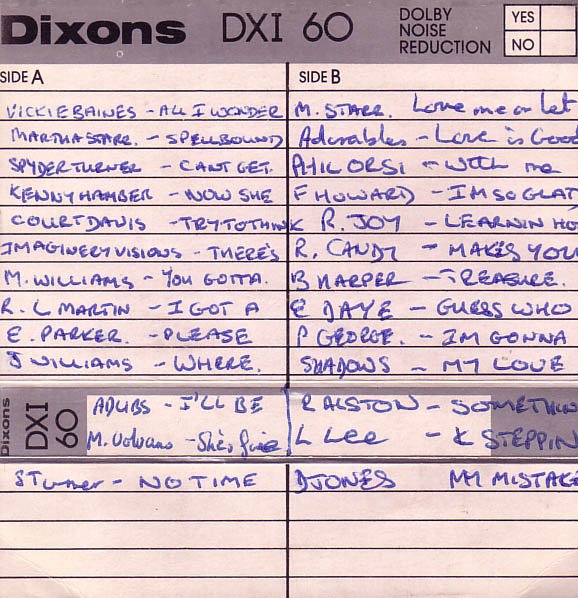 Dixons DXI 60 DOLBY NOISE REDUCTION YES NO
SIDE A
VICKIE BAINES - ALL I WONDER
MARTHA STARR. - SPELLBOUND
SPYDER TURNER - CANT GET.
KENNY HAMBER - NOW SHE
COURT DAVIS - TRY TO THINK
IMAGINERY VISIONS - THERE'S
M. WILLIAMS - YOU GOTTA.
R. L MARTIN - I GOT A
E. PARKER. - PLEASE
J WILLIAMS - WHERE.
SIDE B
M. STARR. Love me or let
Adorables - Love is Good
PHIL ORSI - With me
F HOWARD - IM SO GLAD
R. JOY - LEARNIN HO
R. CANDY - MAKES YOU
B HARPER - TREASURE.
E DAYE - GUESS WHO
P GEORGE. - IM GONNA
SHADOWS - MY LOVE
Dixons DXI 60
ADLIBS - I'LL BE
M. Volcano - She's
R ALSTON - SOMETHIN
L Lee - K STEPPIN
S Turner - NO TIME
D JONES MY MISTAKE